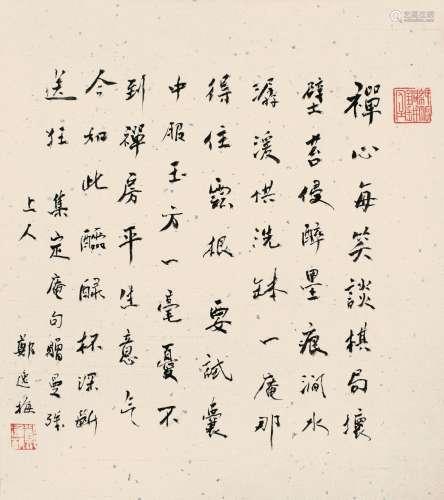 禪心每笑談棋局壞
壁苔侵醉墨痕澗水
潺湲供洗缽一庵那
得住雲根要試囊
中服玉方一毫憂不
到禪房平生意气
今如此醽醁杯深斷
送狂 集定庵句贈曼殊
上人
鄭逸梅